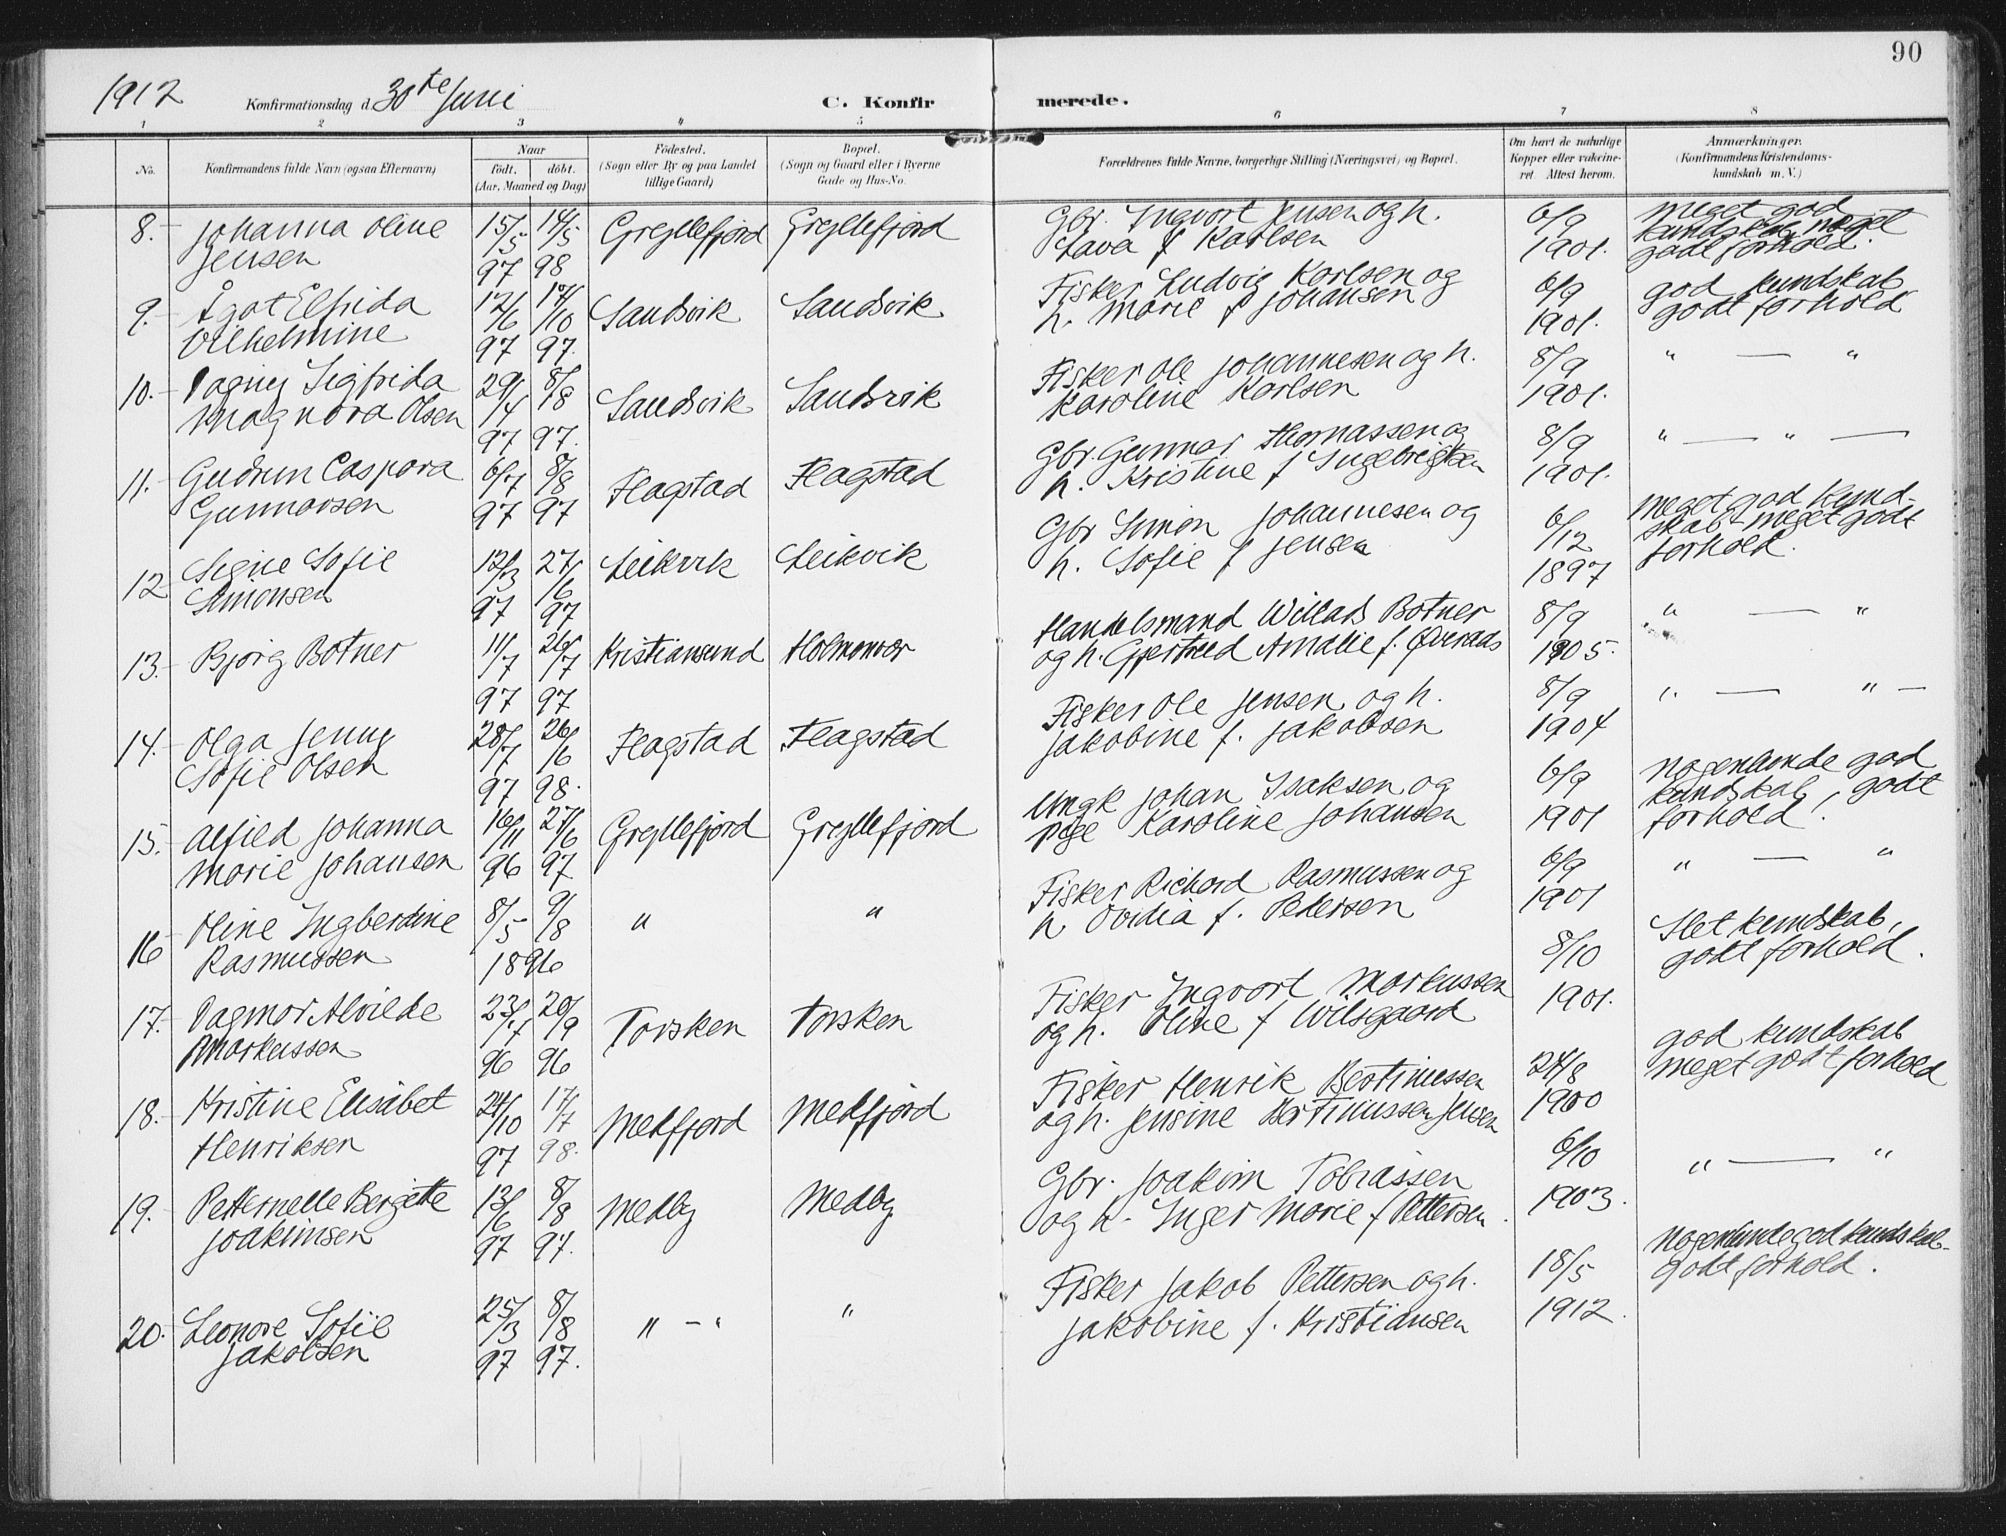 90
1912 Konfirmationsdag d. 30te Juni C. Konfirmerede.
1 2 3 4 5 6 7 8
No. Konfirmandens fulde Navn (ogsaa Efternavn) Naar født. døbt. (Aar, Maaned og Dag) Fødested. (Sogn eller By og paa Landet tillige Gaard) Bopæl. (Sogn og Gaard eller i Byerne Gade og Hus-No. Forældrenes fulde Navne, borgerlige Stilling (Næringsvei) og Bopæl. Om havt de naturlige Kopper eller vakcineret. Attest herom. Anmærkninger. (Konfirmandens Kristendomskundskab m. V.)
8. Johanna Oline Jensen 15/5 97 14/5 98 Gryllefjord Gryllefjord Gbr. Ingvart Jensen og h. Lava f Karlsen 6/9 1901. Meget god kundskab meget godt forhold.
9. Ågot Elfrida Vilhelmine 12/6 97 17/10 97. Sandvik Sandvik Fisker Ludvig Karlsen og h. Marie f Johansen 6/9 1901. god kundskab godt forhold
10. Dagny Sigfrida Magnora Olsen 29/4 97 8/8 97. Sandvik Sandvik Fisker Ole Johannesen og h. Karoline Karlsen 8/9 1901. " — "
11. Gudrun Caspara Gunnarsen 6/7 97 8/8 97 Flagstad Flagstad Gbr. Gunnar Thomassen og h. Kristine f Ingebrigtsen 8/9 1901. " — " —
12 Signe Sofie Simonsen 12/3 97 27/6 97 Leikvik Leikvik Gbr Simon Johannesen og h. Sofie f Jensen 6/12 1897 Meget god kundskab - meget godt forhold.
13. Bjørg Botner 11/7 97 26/7 97 Kristiansund Holmenvær Handelsmand Willads Botner og h. Gjertrud Amalie f. 8/9 1905. " — "
14. Olga Jenny Sofie Olsen 28/7 97 26/6 98. Flagstad Flagstad Fisker Ole Jensen og h. Jakobine f. Jakobsen 8/9 1904 " — " —
15. Alfild Johanna Marie Johansen 16/11 96 27/6 97. Gryllefjord Gryllefjord Ungk Johan Isaksen og pige Karoline Johansen 6/9 1901 Nogenlunde god kundskab, godt forhold.
16 Oline Ingberdine Rasmussen 8/5 9/8 1896 " " Fisker Richard Rasmussen og h Ovidia f. Pedersen 6/9 1901 " — "
17. Dagmar Alvilde Markussen 23/4 96 20/9 96 Torsken Torsken Fisker Ingvart Markussen og h. Oline f Wilsgaard 8/10 1901. Slet kundskab, godt forhold.
18. Kristine Elisabet Henriksen 24/10 97 17/7 98. Medfjord Medfjord Fisker Henrik Bertinussen og h. Jensine Bertinussen Jensen 24/8 1900 god kundskab meget godt forhold
19. Petternelle Bergette Joakimsen 13/6 97 8/8 97. Medby Medby Gbr. Joakim Tobiassen og h. Inger Marie f Pettersen. 6/10 1903. " — "
20. Leonore Sofie Jakobsen 25/3 97 8/8 97. " - " " Fisker Jakob Pettersen og h. Jakobine f. Kristiansen 18/5 1912. Nogenlunde god kundskab - godt forhold.